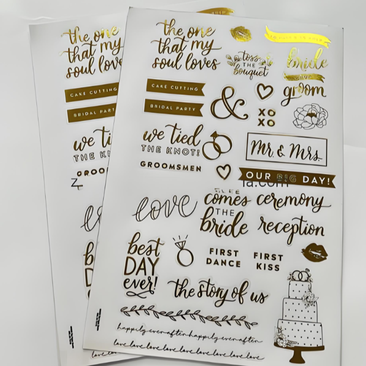 the one
that my
soul loves
toss the
bouquet
bride
groom
CAKE CUTTING
BRIDAL PARTY
&
XO
XO
we tied
THE KNOT!
Mr. & Mrs.
GROOMSMEN
OUR BIG DAY!
love
comes
THE
bride
ceremony
reception
best
DAY
ever!
FIRST
DANCE
FIRST
KISS
the story of us
happily ever after happily ever after
love love love love love love love love
the one
that my
soul loves
CAKE CUTTING
BRIDAL PARTY
we tied
THE K
GROO
best
DAY
ever!